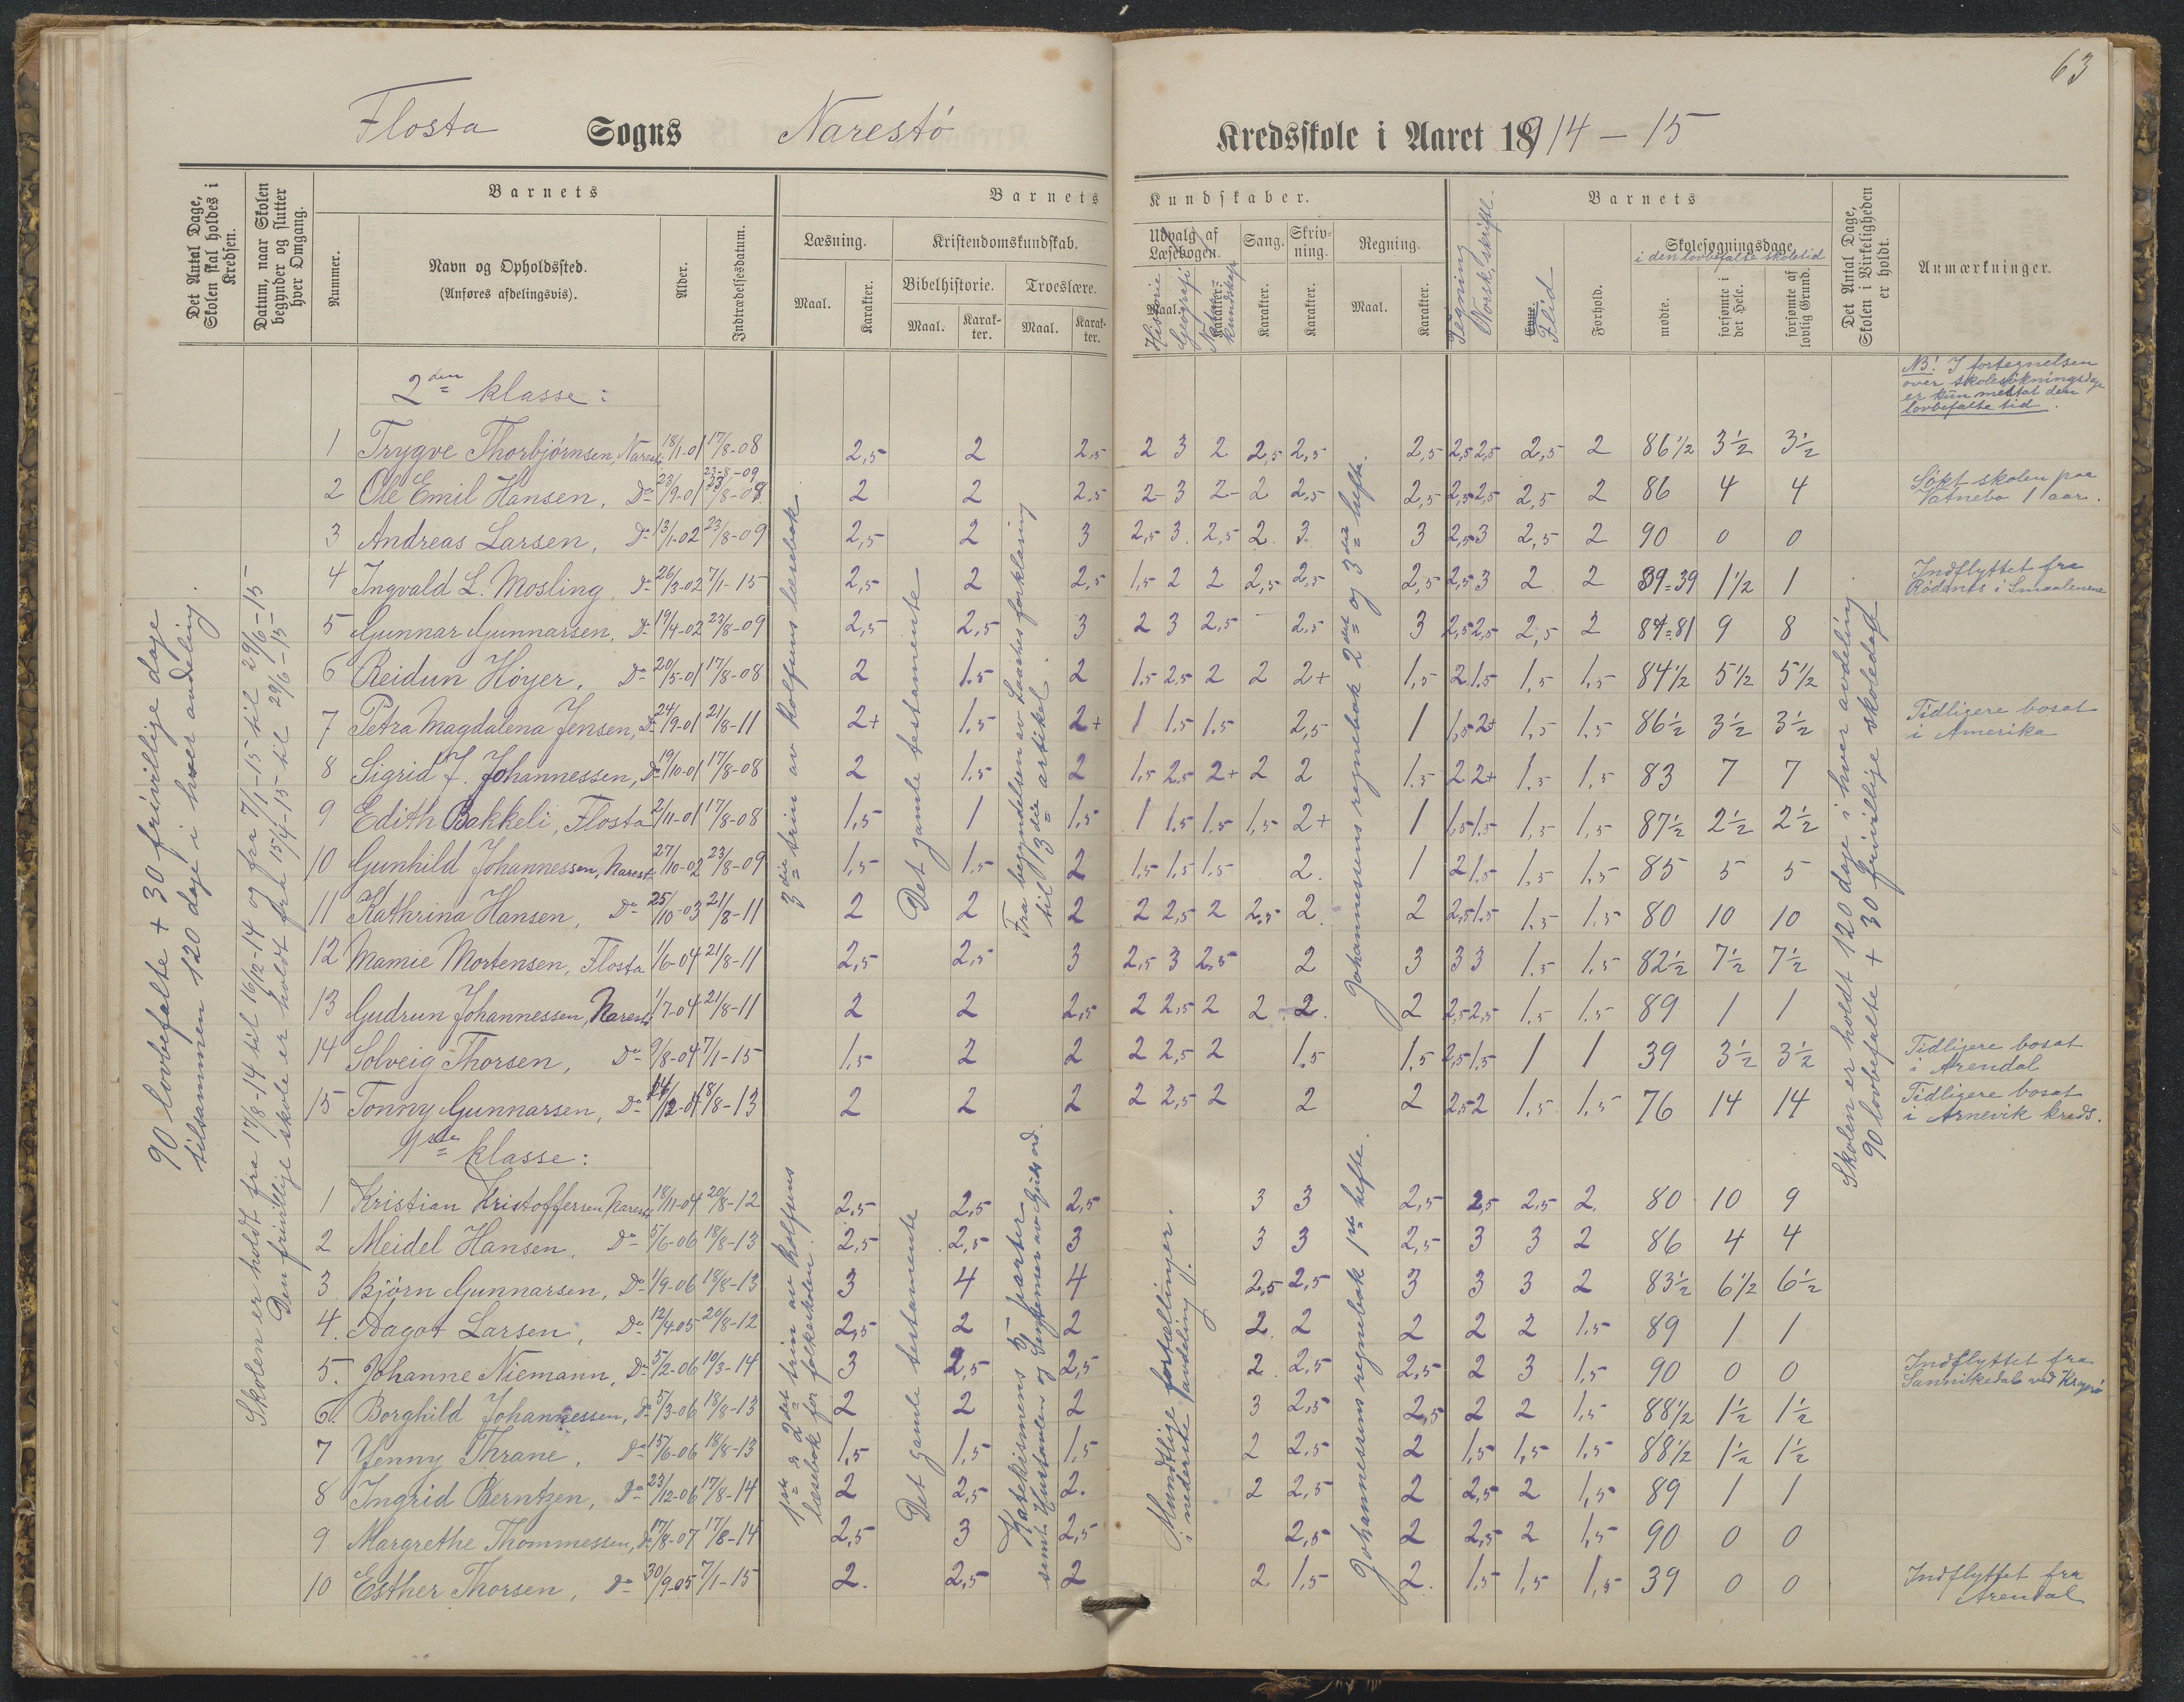 63
Flosta Sogns Narestö Kredsskole i Aaret 1914 – 15
Det Antal Dage, Skolen skal holdes i Kredsen.
Datum, naar Skolen begynder og slutter hver Omgang.
Barnets
Nummer.
Navn og Opholdssted.
(Anføres afdelingsvis).
Alder.
Indtrædelsesdatum.
Barnets Kundskaber.
Læsning.
Maal.
Karakter.
Kristendomskundskab.
Bibelhistorie.
Maal.
Karakter.
Troeslære.
Maal.
Karakter.
Udvalg af Læsebogen.
Maal.
Karakter.
Historie
Geografi
Naturkundskap
Sang.
Karakter.
Skrivning.
Karakter.
Regning.
Maal.
Karakter.
Tegning
Norsk, skiftl.
Barnets
Evne.
Flid
Forhold.
Skolesøgningsdage
i den lovbefalte skoletid
mødte.
forsømte i det Hele.
forsømte af lovlig Grund.
Det Antal Dage, Skolen i Virkeligheden er holdt.
Anmærkninger.
NB! I fortegnelsen
over skolesøkningsdage
er kun medtat den
lovbefalte tid.
90 lovbefalte + 30 frivillige dage
tilsammen 120 dage i hver avdeling.
Skolen er holdt fra 17/8-14 til 16/12-14 og fra 7/1-15 til 29/6-15
Den frivillige skole er holdt fra 15/4-15 til 29/6-15
2den klasse:
3die trin av Rolfsens læsebok.
Det gamle testamente
Fra begyndelsen av Laaches forklaring
til 3die artikel.
Johannesens regnebok 2det og 3die hefte.
Skolen er holdt 120 dage i hver avdeling
90 lovbefalte + 30 frivillige skoledage
1 Trygve Thorbjörnsen, Narestö 18/1-01 17/8-08 2,5 2 2,5 2 3 2 2,5 2,5 2,5 2,5 2,5 2,5 2 86 1/2 3 1/2 3 1/2
2 Ole Emil Hansen, Do 23/9-01 23-8-09 2 2 2,5 2- 3 2- 2 2,5 2,5 2,5 2,5 2,5 2 86 4 4 Søkt skolen paa Vatnebo 1 aar.
3 Andreas Larsen, Do 13/1-02 23/8-09 2,5 2 3 2,5 3 2,5 2 3 3 2,5 3 2,5 2 90 0 0
4 Ingvald L. Mosling, Do 26/3-02 7/1-15 2,5 2 2,5 1,5 2 2 2,5 2,5 2,5 2,5 3 2 2 39=39 1 1/2 1 Indflyttet fra Rødenes i Smaalenene
5 Gunnar Gunnarsen, Do 19/4-02 23/8-09 2,5 2,5 3 2 3 2,5 - 2,5 3 2,5 2,5 2,5 2 81=81 9 8
6 Reidun Höyer, Do 20/5-01 17/8-08 2 1.5 2 1.5 2,5 2 2 2+ 1,5 2 1.5 1,5 1,5 84 1/2 5 1/2 5 1/2
7 Petra Magdalena Jensen, Do 24/9-01 21/8-11 2+ 1.5 2+ 1 1.5 1.5 2,5 1 1,5 2+ 1,5 1.5 86 1/2 3 1/2 3 1/2 Tidligere bosat i Amerika
8 Sigrid J. Johannessen, Do 19/10-01 17/8-08 2 1.5 2 1.5 2.5 2+ 2 2 1.5 2 2+ 1.5 1.5 83 7 7
9 Edith Bakkeli, Flosta 2/11-01 17/8-08 1,5 1 1,5 1 1.5 1.5 1,5 2+ 1 1,5 1.5 1,5 1,5 87 1/2 2 1/2 2 1/2
10 Gunhild Johannessen, Narestö 27/10-02 23/8-09 1,5 1.5 2 1.5 1.5 1.5 2. 1 2 1.5 1,5 1,5 85 5 5
11 Kathrina Hansen, Do 25/10-03 21/8-11 2 2 2 2 2,5 2 2,5 2. 2 2,5 1.5 1,5 1.5 80 10 10
12 Mamie Mortensen, Flosta 1/6-04 21/8-11 2,5 2,5 3 2,5 3 2,5 2 3 3 3 1.5 1.5 82 1/2 7 1/2 7 1/2
13 Gudrun Johannessen, Narestö 1/7-04 21/8-11 2 2 2,5 2 2,5 2 2 2. 2 2,5 2,5 1.5 1.5 89 1 1
14 Solveig Thorsen, Do 9/8-04 7/1-15 1,5 2 2 2 2,5 2 1.5 1.5 2,5 1.5 1 1 39 3 1/2 3 1/2 Tidligere bosat i Arendal
15 Tonny Gunnarsen, Do 24/12-04 18/8-13 2 2 2 2 2,5 2 2 2 2,5 2 1,5 1,5 76 14 14 Tidligere bosat i Arnevik kreds.
1ste klasse:
1ste & 2det trin av Rolfsens
læsebok for folkeskolen.
Det gamle testamente
Katekismens 5 parter
samt Hustavlen og Gjennemgn av Guds ord.
Mundtlige fortællinger.
i nederste avdeling.
Johannessens regnebok 1ste hefte.
1 Kristian Kristoffersen Narestö 18/11-04 20/8-12 2,5 2,5 2,5 3 3 2,5 2,5 2,5 2 80 10 9
2 Meidel Hansen, Do 5/6-06 18/8-13 2,5 2,5 3 3 3 2,5 3 3 2 86 4 4
3 Björn Gunnarsen, Do 1/9-06 18/8-13 3 4 4 2,5 2,5 3 3 3 2 83 1/2 6 1/2 6 1/2
4. Dagot Larsen, Do 12/4-05 20/8-12 2,5 2 2 2. 2 2 2 2 1.5 89 1 1
5. Johanne Niemann, Do 5/2-06 10/3-14 3 2,5 2,5 2. 2,5 2,5 2 3 1,5 90 0 0 Indflyttet fra Sannikedal ved Kragerö
6. Borghild Johannessen, Do 5/3-06 18/8-13 2 2 2 3 2,5 2,5 2 2 1,5 88 1/2 1 1/2 1 1/2
7 Jenny Thrane, Do 15/6-06 18/8-13 1,5 1,5 1,5 2 2,5 2 1,5 1,5 1.5 88 1/2 1 1/2 1 1/2
8 Ingrid Berntzen, Do 23/12-06 17/8-14 2 2,5 2. 2 2,5 2 2,5 2 1,5 89 1 1
9 Margrethe Thommessen, Do 17/8-07 17/8-14 2,5 3 2,5 2,5 2 2,5 2 1,5 90 0 0
10 Esther Thorsen, Do 30/9-05 7/1-15 2. 2,5 2 2 1,5 2. 1,5 1,5 1,5 39 0 0 Indflyttet fra Arendal